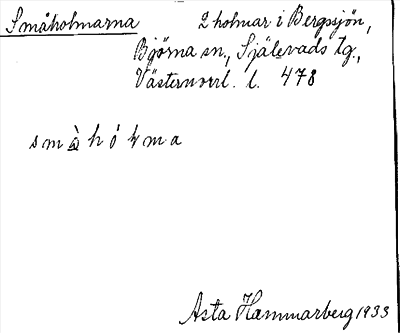 Småholmarna 2 holmar i Bergsjön,
Björna sn, Själevads tg.,
Västernorrl. l. 478
småhólma
Asta Hammarberg 1933